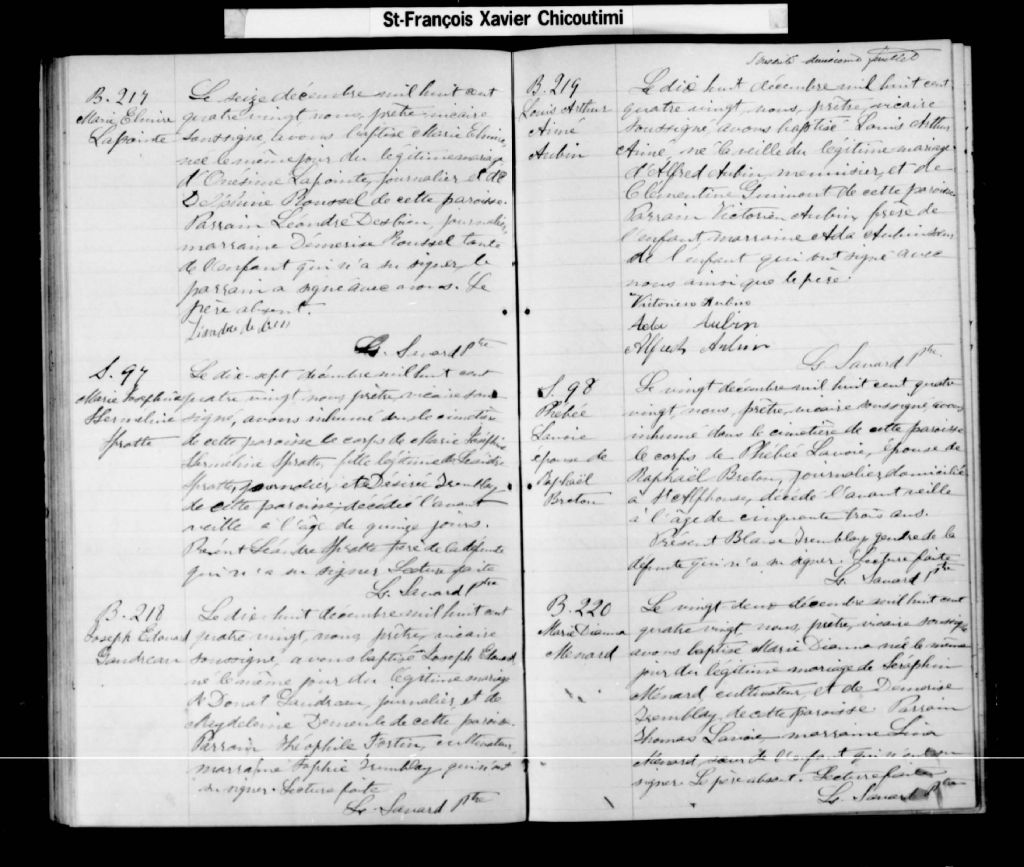 St-François Xavier Chicoutimi
B. 217
Marie Elmire
Lapointe
Le seize décembre mil huit cent
quatre vingt nous, prêtre, vicaire
soussigné, avons baptisé Marie Elmire,
née le même jour du légitime mariage
d'Onésime Lapointe, journalier et de
Delphine Roussel de cette paroisse.
Parrain Léandre Desbien, journalier,
marraine Démerise Roussel tante
de l'enfant qui n'a su signer, le
parrain a signé avec nous. Le
père absent.
L. Savard Ptre
S. 97
Marie Joséphine
Herméline
Gratte
Le dix-sept décembre mil huit cent
quatre vingt nous prêtre, vicaire sous
signé, avons inhumé dans le cimetière
de cette paroisse le corps de Marie Joséphine
Herméline fille légitime de Léandre
journalier, et de Désirée Tremblay
de cette paroisse décédée l'avant
veille à l'âge de quinze jours.
Présent Léandre père de la défunte
qui n'a su signer. Lecture faite
L. Savard Ptre
B. 218
Joseph Edouard
Gaudreau
Le dix huit décembre mil huit cent
quatre vingt, nous prêtre, vicaire
soussigné, avons baptisé Joseph Edouard
né le même jour du légitime mariage
de Donat Gaudreau, journalier, et de
Demeule de cette paroisse.
Parrain Théophile Fortin, cultivateur,
marraine Sophie Tremblay qui n'ont
su signer. Lecture faite
L. Savard Ptre
feuillet
B. 219
Louis Arthur
Aimé
Aubin
Le dix huit décembre mil huit cent
quatre vingt nous, prêtre, vicaire
soussigné, avons baptisé Louis Arthur
Aimé né la veille du légitime mariage
d'Alfred Aubin, menuisier, et de
Clémentine Guimont de cette paroisse
Parrain Victorien Aubin, frère de
l'enfant, marraine Ada Aubin soeur
de l'enfant qui ont signé avec
nous ainsi que le père
Victorien Aubin
Ada Aubin
Alfred Aubin
L. Savard Ptre.
S. 98
Phébée
Lavoie
épouse de
Raphaël
Breton
Le vingt décembre mil huit cent quatre
vingt nous, prêtre, vicaire soussigné avons
inhumé dans le cimetière de cette paroisse
le corps de Phébée Lavoie, épouse de
Raphaël Breton, journalier, domicilié
à St Alphonse, décédé l'avant veille
à l'âge de cinquante trois ans.
Présent Blaise Tremblay gendre de la
défunte qui n'a su signer. Lecture faite
L. Savard Ptre
B. 220
Marie Dianna
Menard
Le vingt deux décembre mil huit cent
quatre vingt nous, prêtre, vicaire soussigné
avons baptisé Marie Dianna née le même
jour du légitime mariage de Séraphin
Ménard cultivateur, et de Demerise
Tremblay de cette paroisse Parrain
Thomas Lavoie marraine Lina
Menard, soeur de l'enfant qui n'ont su
signer. Le père absent. Lecture faite
L. Savard Ptre